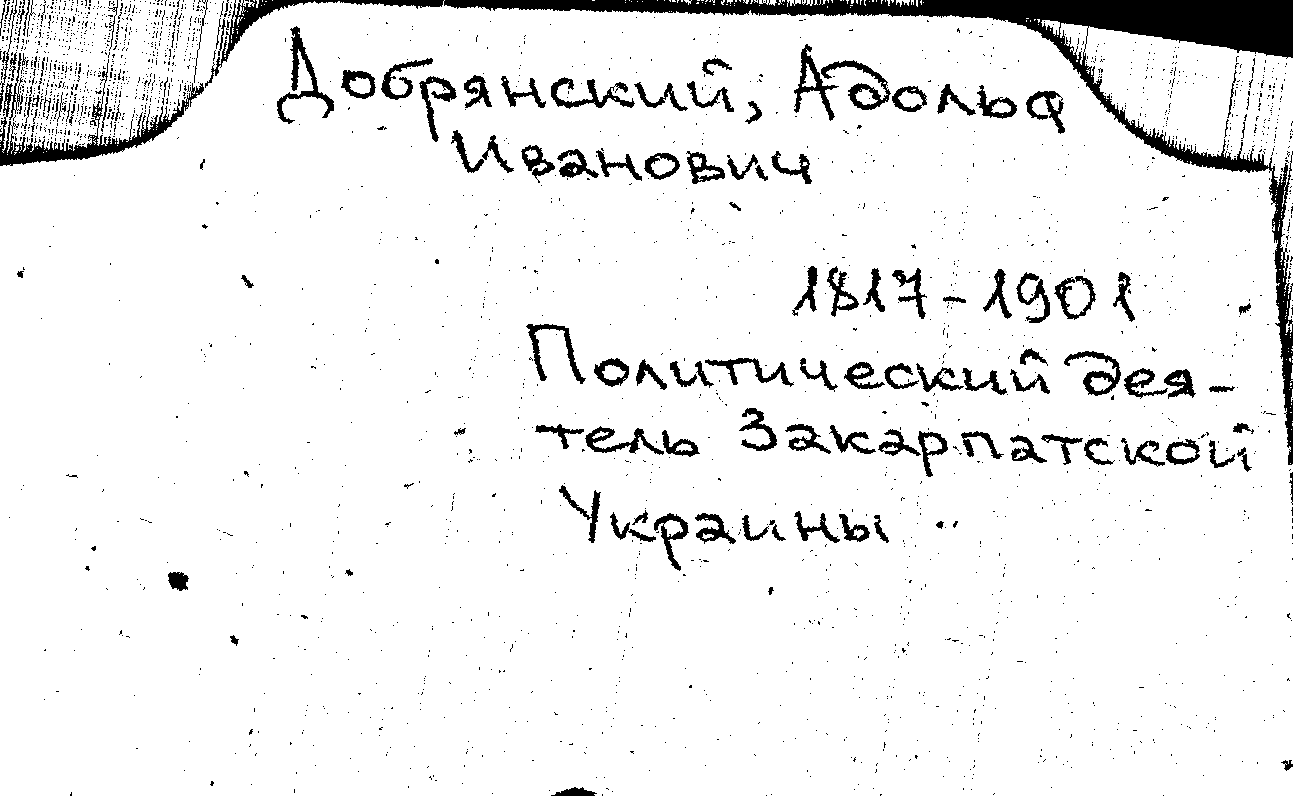 Добрянский, Адольф
Иванович
1817-1901
Политический дея-
тель Закарпатской
Украины